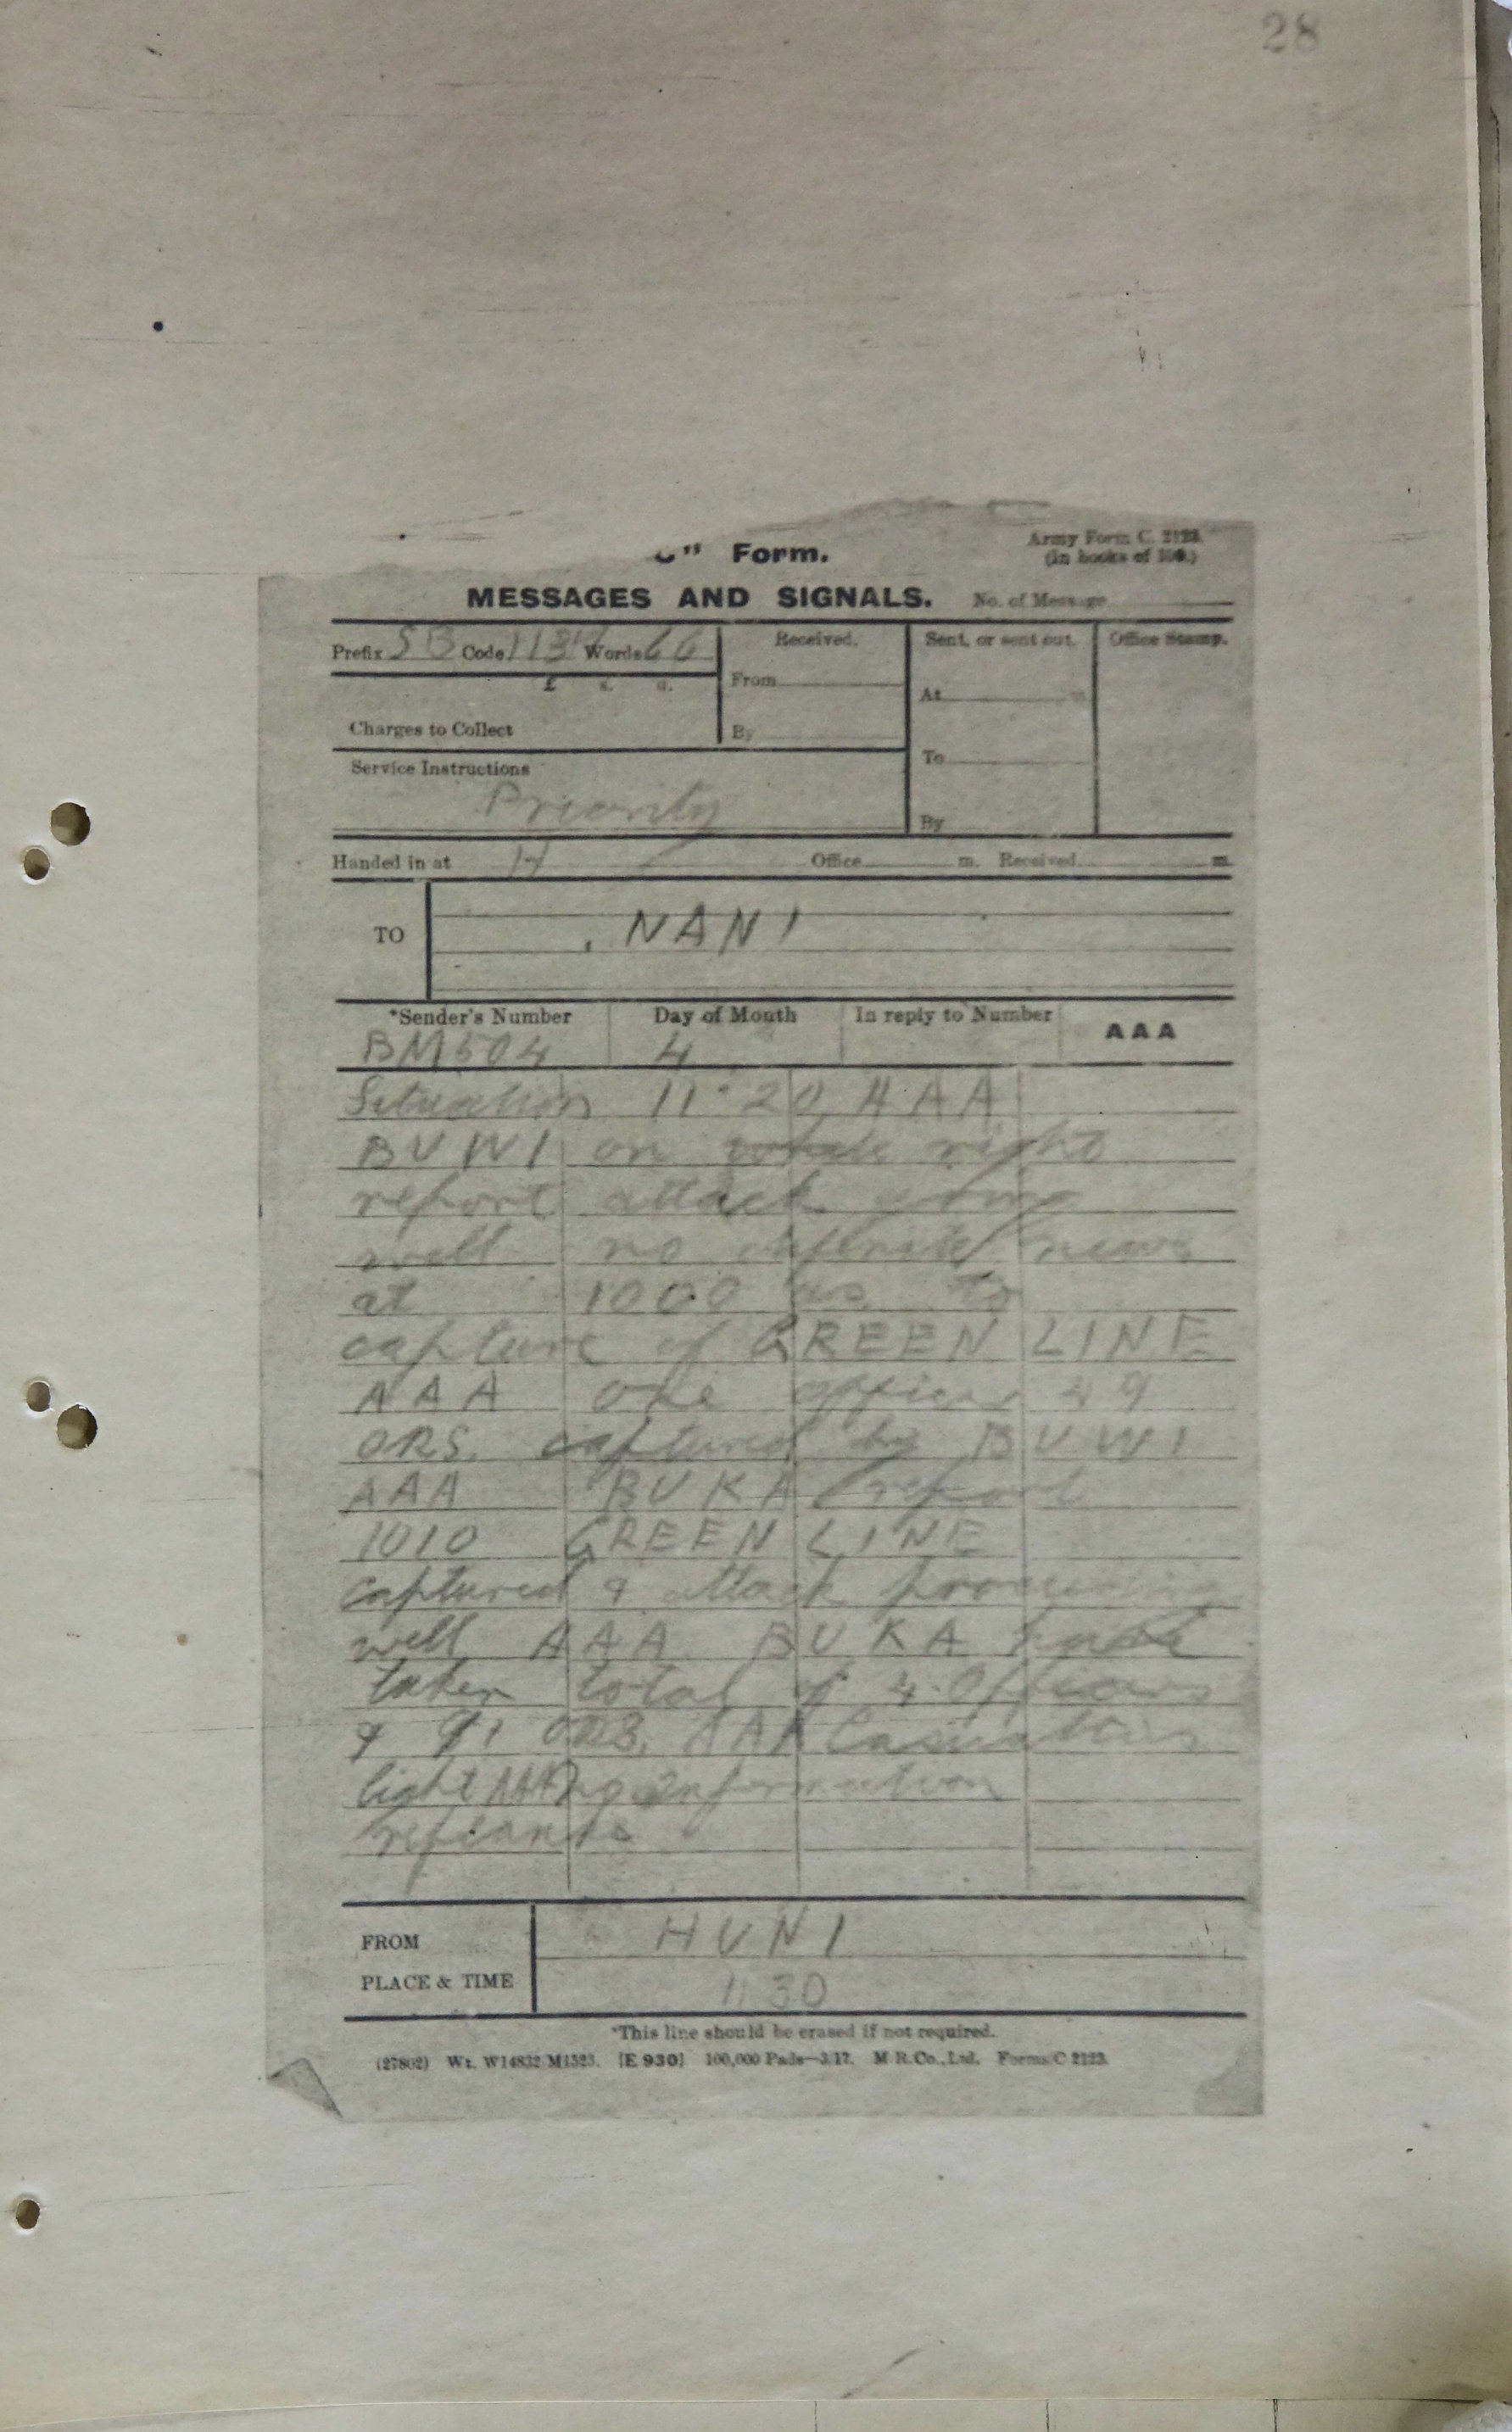 28
" Form.
Army Form C. 2123.
(in books of 100.)
MESSAGES AND SIGNALS.
No. of Message
Prefix SB Code 1134 Words 66
Received.
Sent, or sent out.
Office Stamp.
£ s. d.
From
At m
Charges to Collect
By
To
Service Instructions
Priority
By
Handed in at H Office m. Received m
TO
NANI
*Sender's Number
Day of Month
In reply to Number
AAA
BM504
4
Situation 11.20 AAA
BUWI on right
report attack going
well no definite news
at 1000 as to
capture of GREEN LINE
AAA one officer 49
ORS. captured by BUWI
AAA BUKA report
1010 GREEN LINE
captured & attack proceeding
well AAA BUKA have
taken total of 4 Officers
& 91 ORS. AAA Casualties
light AAA no information
FROM
HUNI
PLACE & TIME
1130
*This line should be erased if not required.
(27802) Wt. W14832/M1523. [E 930] 100,000 Pads—3/17. M.R.Co.,Ltd. Forms/C 2123.